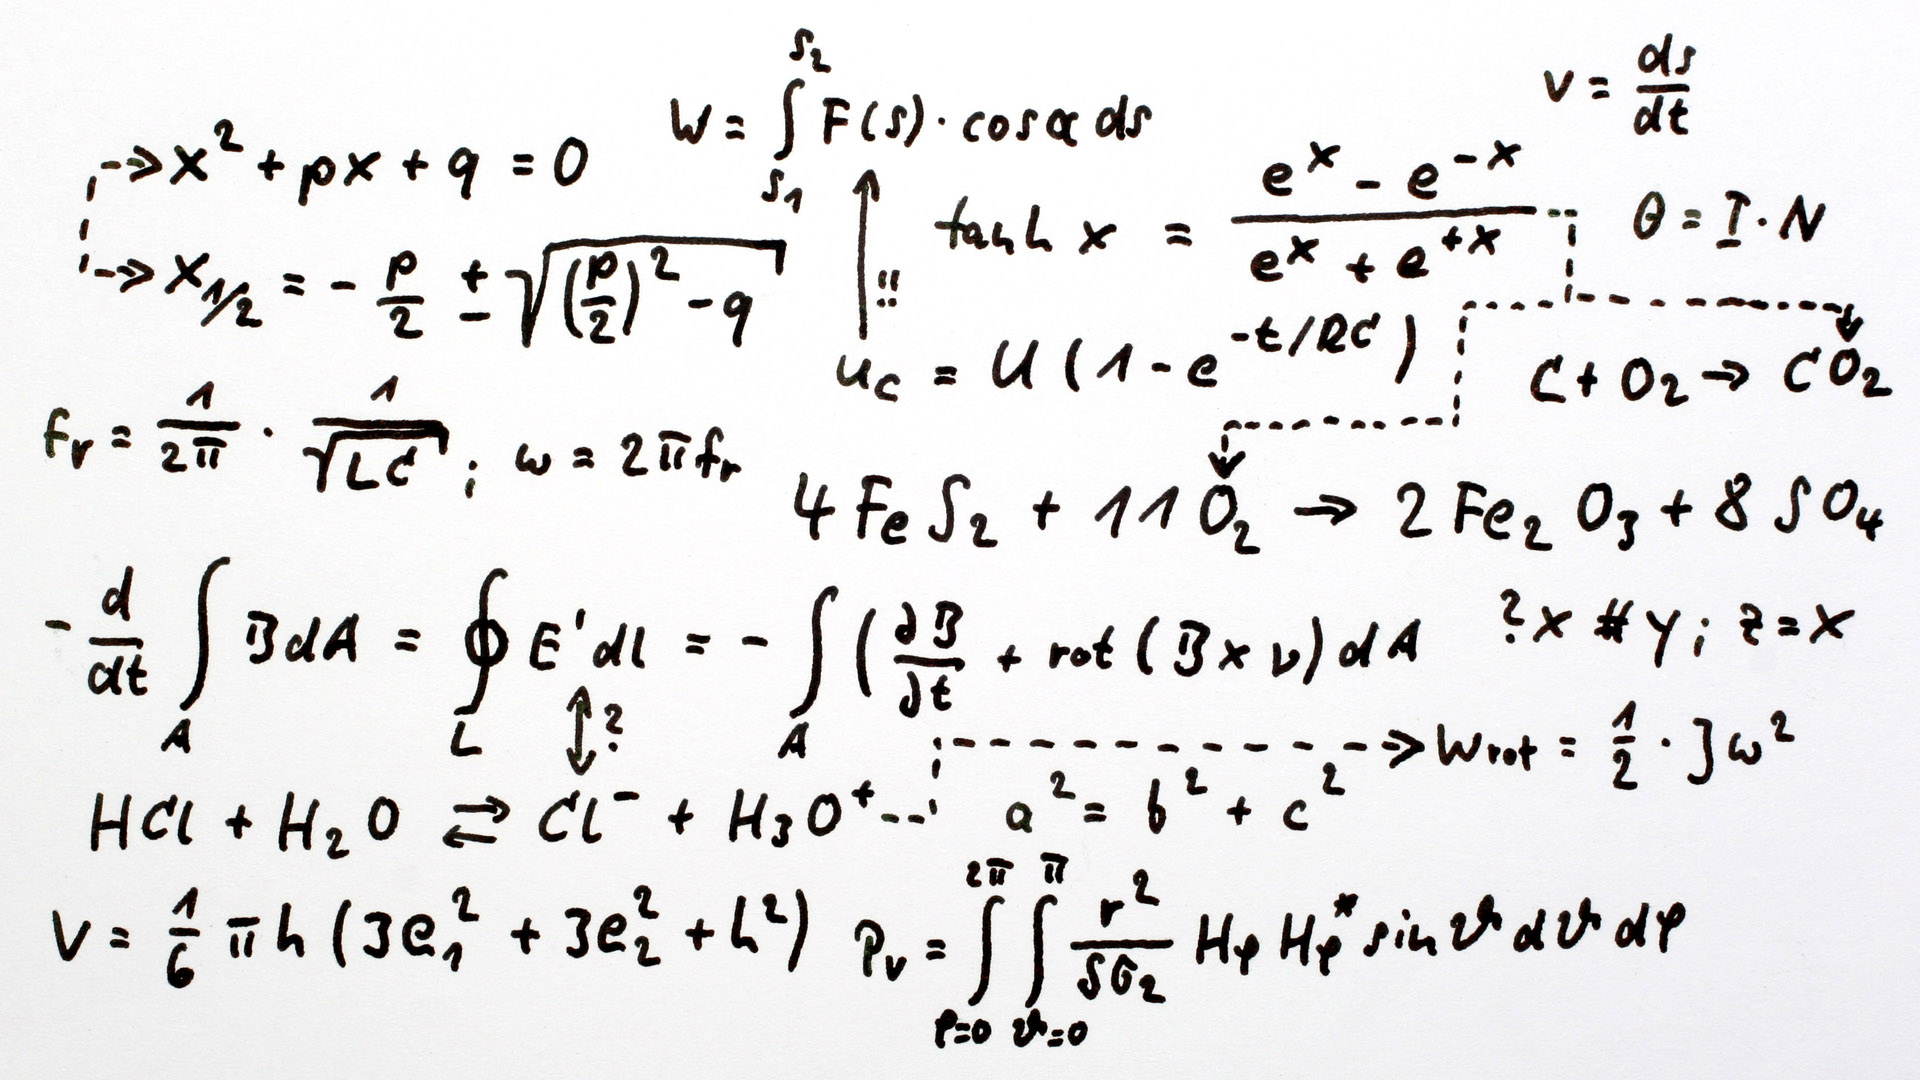 W = ∫_{s₁}^{s₂} F(s) · cos α ds
v = ds/dt
x² + px + q = 0
tanh x = (eˣ - e⁻ˣ)/(eˣ + e⁺ˣ)
θ = I · N
x_{1/2} = - p/2 ± √((p/2)² - q)
!!
u_C = U (1 - e^{-t/RC})
C + O₂ → CO₂
f_r = 1/(2π) · 1/√(LC) ; ω = 2π f_r
4 FeS₂ + 11 O₂ → 2 Fe₂O₃ + 8 SO₄
- d/dt ∫_A B dA = ∮_L E' dl = - ∫_A (∂B/∂t + rot (B x v) dA
? x # y ; z = x
?
W_rot = 1/2 · J ω²
HCl + H₂O ⇄ Cl⁻ + H₃O⁺
a² = b² + c²
V = 1/6 π h (3e₁² + 3e₂² + h²)
P_v = ∫_{φ=0}^{2π} ∫_{ϑ=0}^{π} r²/(δσ₂) H_φ H_φ* sin ϑ dϑ dφ